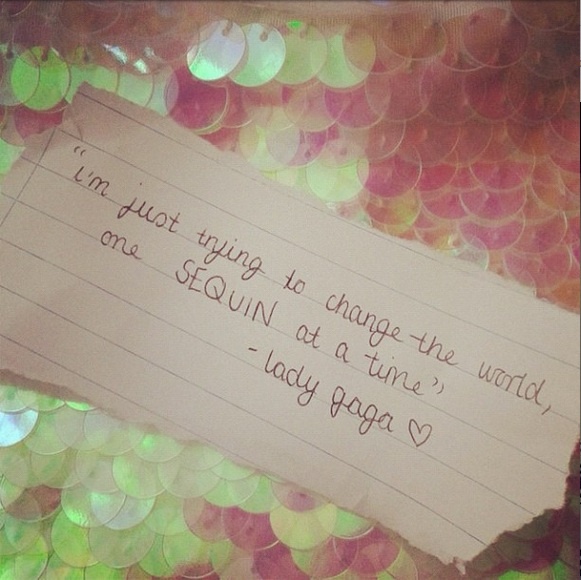 "i'm just trying to change the world,
one SEQUIN at a time"
-lady gaga ♡